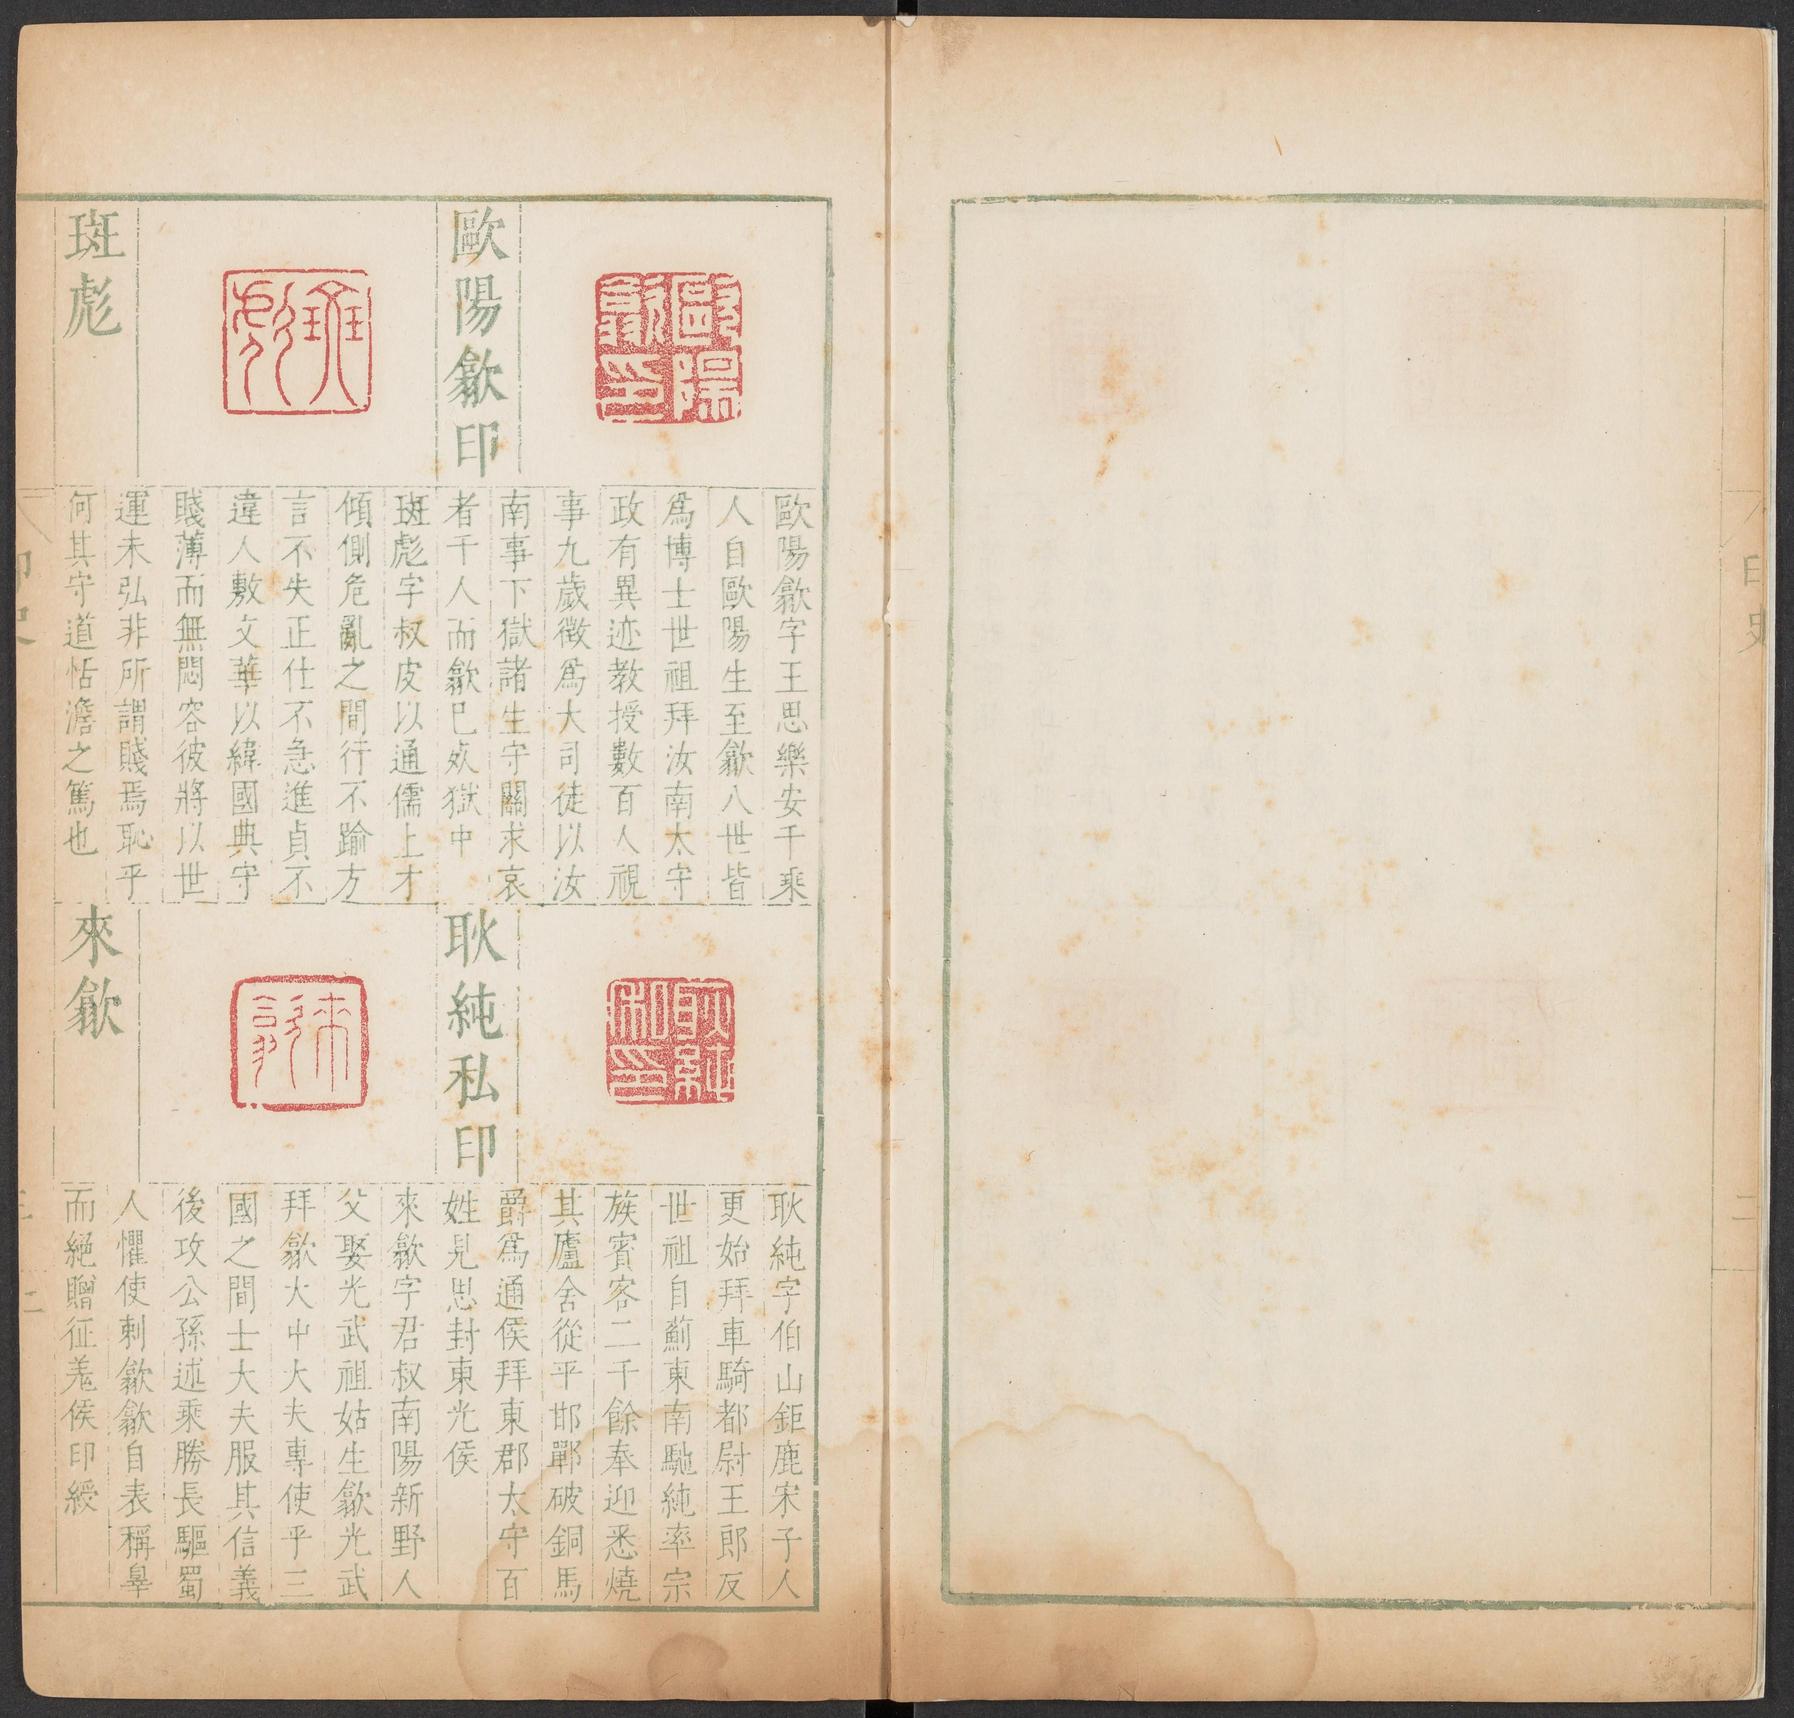 印史
二
歐陽歙印
歐陽歙字王思樂安千乘
人自歐陽生至歙八世皆
爲博士世祖拜汝南太守
政有異迹教授數百人視
事九歲徵爲大司徒以汝
南事下獄諸生守闕求哀
者千人而歙已䢖獄中
斑彪
斑彪字叔皮以通儒上才
傾側危亂之間行不踰方
言不失正仕不急進貞不
違人敷文華以緯國典守
賤薄而無悶容彼將以世
運未弘非所謂賤焉恥乎
何其守道恬澹之篤也
耿純私印
耿純字伯山鉅鹿宋子人
更始拜車騎都尉王郎反
世祖自薊東南馳純率宗
族賓客二千餘奉迎悉燒
其廬舍從平邯鄲破銅馬
爵爲通侯拜東郡太守百
姓見思封東光侯
來歙
來歙字君叔南陽新野人
父娶光武祖姑生歙光武
拜歙大中大夫專使乎三
國之間士大夫服其信義
後攻公孫述乘勝長驅蜀
人懼使刺歙歙自表稱辠
而絕贈征羌侯印綬
歐陽歙印
斑彪
耿純私印
來歙